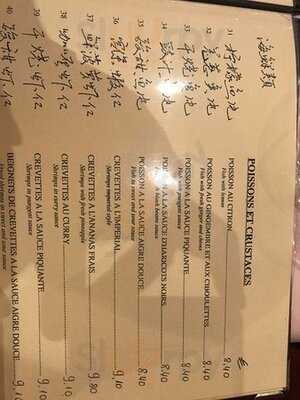 海鲜類
POISSONS ET CRUSTACES
€
31 柠檬鱼片 POISSON AU CITRON 8,40
Fish with lemon
32 葱姜魚片 POISSON AU GINGEMBRE ET AUX CIBOULETTES 8,40
Fish with fresh ginger and chives
33 干烧鱼片 POISSON A LA SAUCE PIQUANTE 8,40
Fish with pungent sauce
34 豉汁鱼片 POISSON A LA SAUCE D'HARICOTS NOIRS 8,40
Fish with black beans sauce
35 酸甜魚片 POISSON A LA SAUCE AIGRE DOUCE 8,40
Fish in sweet and sour sauce
36 宫保虾仁 CREVETTES A L'IMPERIAL 9,10
Shrimps imperial style
37 鲜菠萝虾仁 CREVETTES A L'ANANAS FRAIS 9,80
Shrimps with fresh pineapple
38 咖喱虾仁 CREVETTES AU CURRY 9,10
Shrimps in curry sauce
39 干烧虾仁 CREVETTES A LA SAUCE PIQUANTE 9,10
Shrimps in pungent sauce
40 酸甜虾仁 BEIGNETS DE CREVETTES A LA SAUCE AIGRE DOUCE 9,10